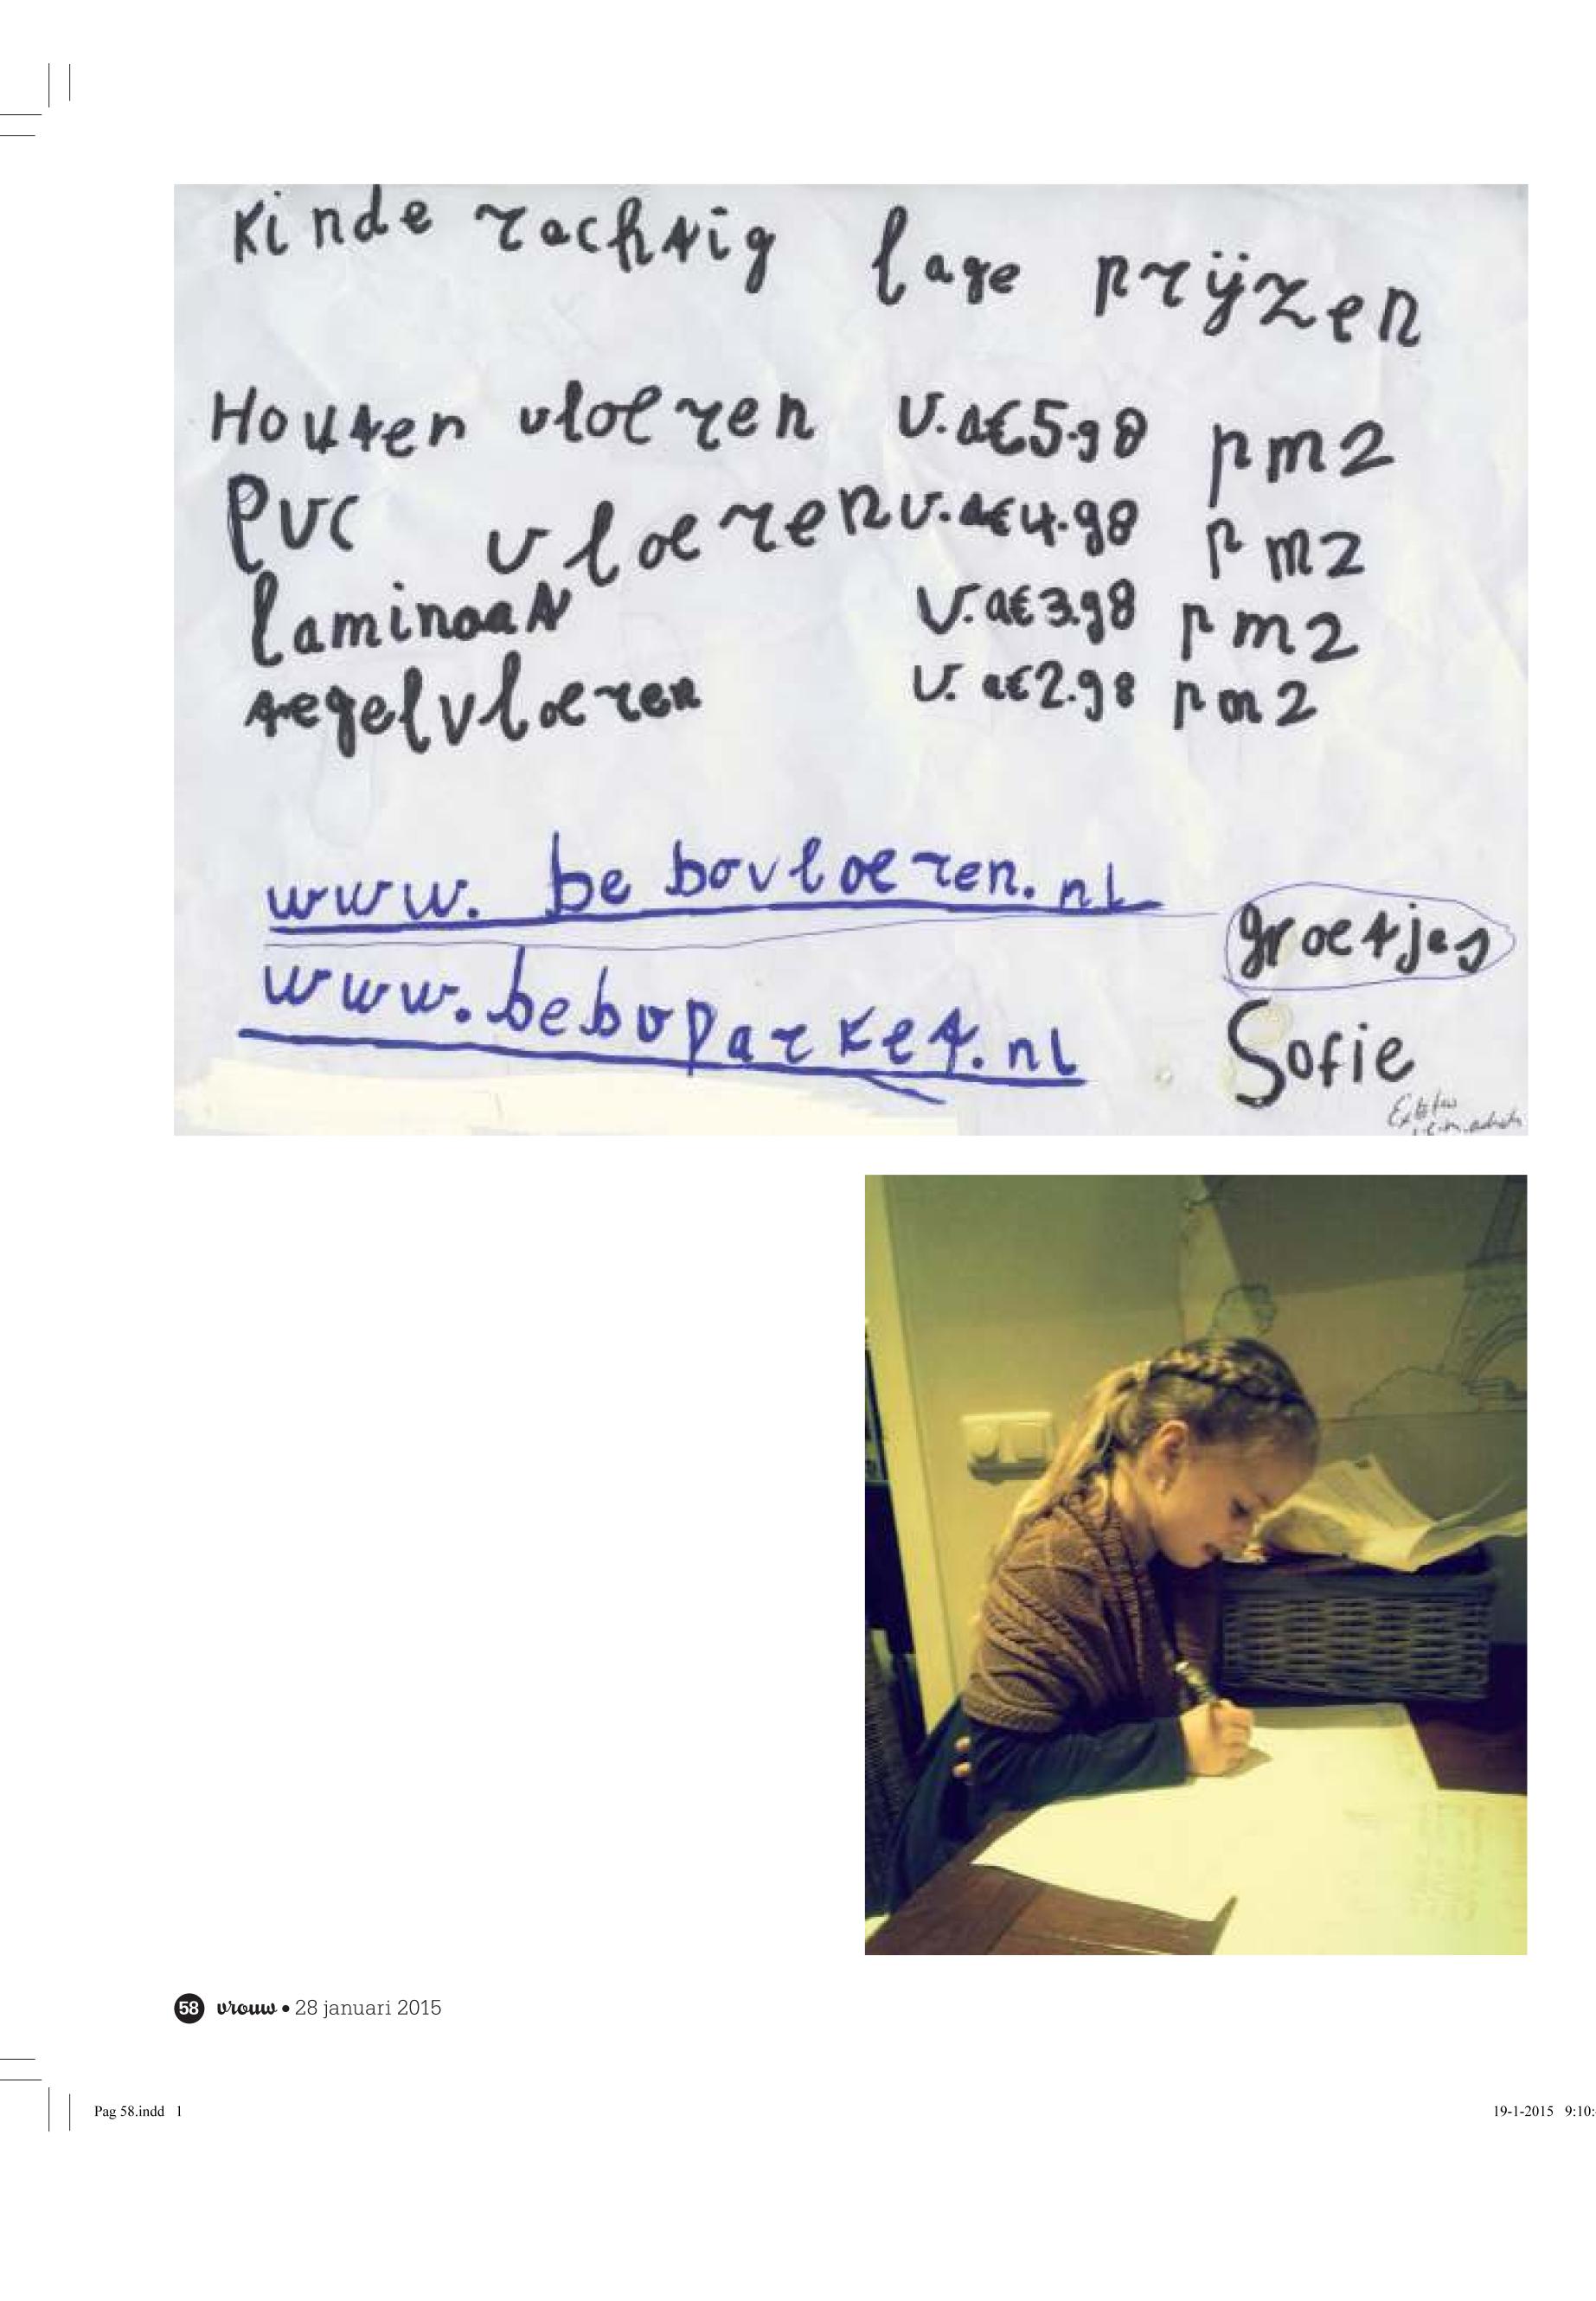 Kinderachtig lage prijzen
Houten vloeren v.a €5.98 pm2
PVC vloeren v.a €4.98 pm2
laminaat v.a €3.98 pm2
tegelvloeren v. a €2.98 pm2
www. bebovloeren.nl
groetjes
www.beboparket.nl
Sofie
58 vrouw • 28 januari 2015
Pag 58.indd 1
19-1-2015 9:10: